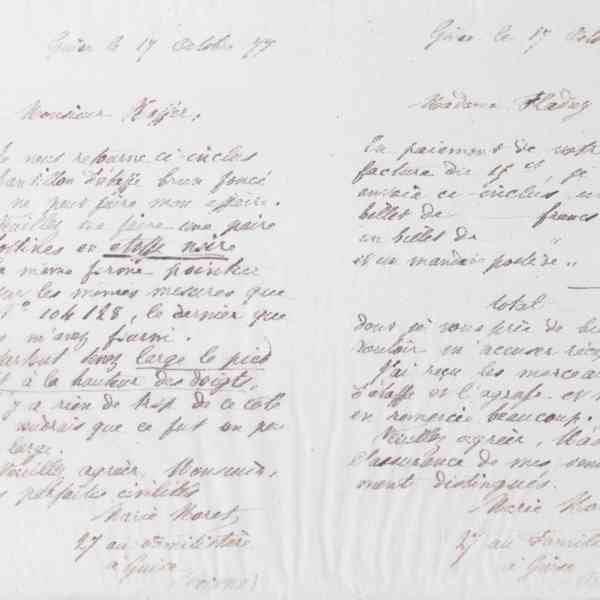 Guise le 17 Octobre 77
Monsieur Kaffer,
Je vous retourne ci-inclus
échantillon d'étoffe brun foncé
ne peut faire mon affaire.
Veuillez me faire une paire
bottines en étoffe noire
même forme pointue
sur les mêmes mesures que
N° 104128, le dernier que
m'avez fourni.
Surtout tenez large le pied
à la hauteur des doigts,
y a rien de trop de ce côté
voudrais que ce fut un peu
large.
Veuillez agréer, Monsieur,
parfaites civilités
Marie Moret
27 au Familistère
à Guise
(Aisne)
Guise le 17 Octo
Madame
En paiement de votre
facture du 15 ct, je
envoie ci-inclus un
billet de francs
un billet de
et un mandat poste de "
total
dont je vous prie de bien
vouloir m'accuser réce
J'ai reçu les morceau
d'étoffe et l'agrafe et v
en remercie beaucoup.
Veuillez agréer, Mad
l'assurance de mes sen
ment distingués.
Marie Mor
27 au Familis
à Guise